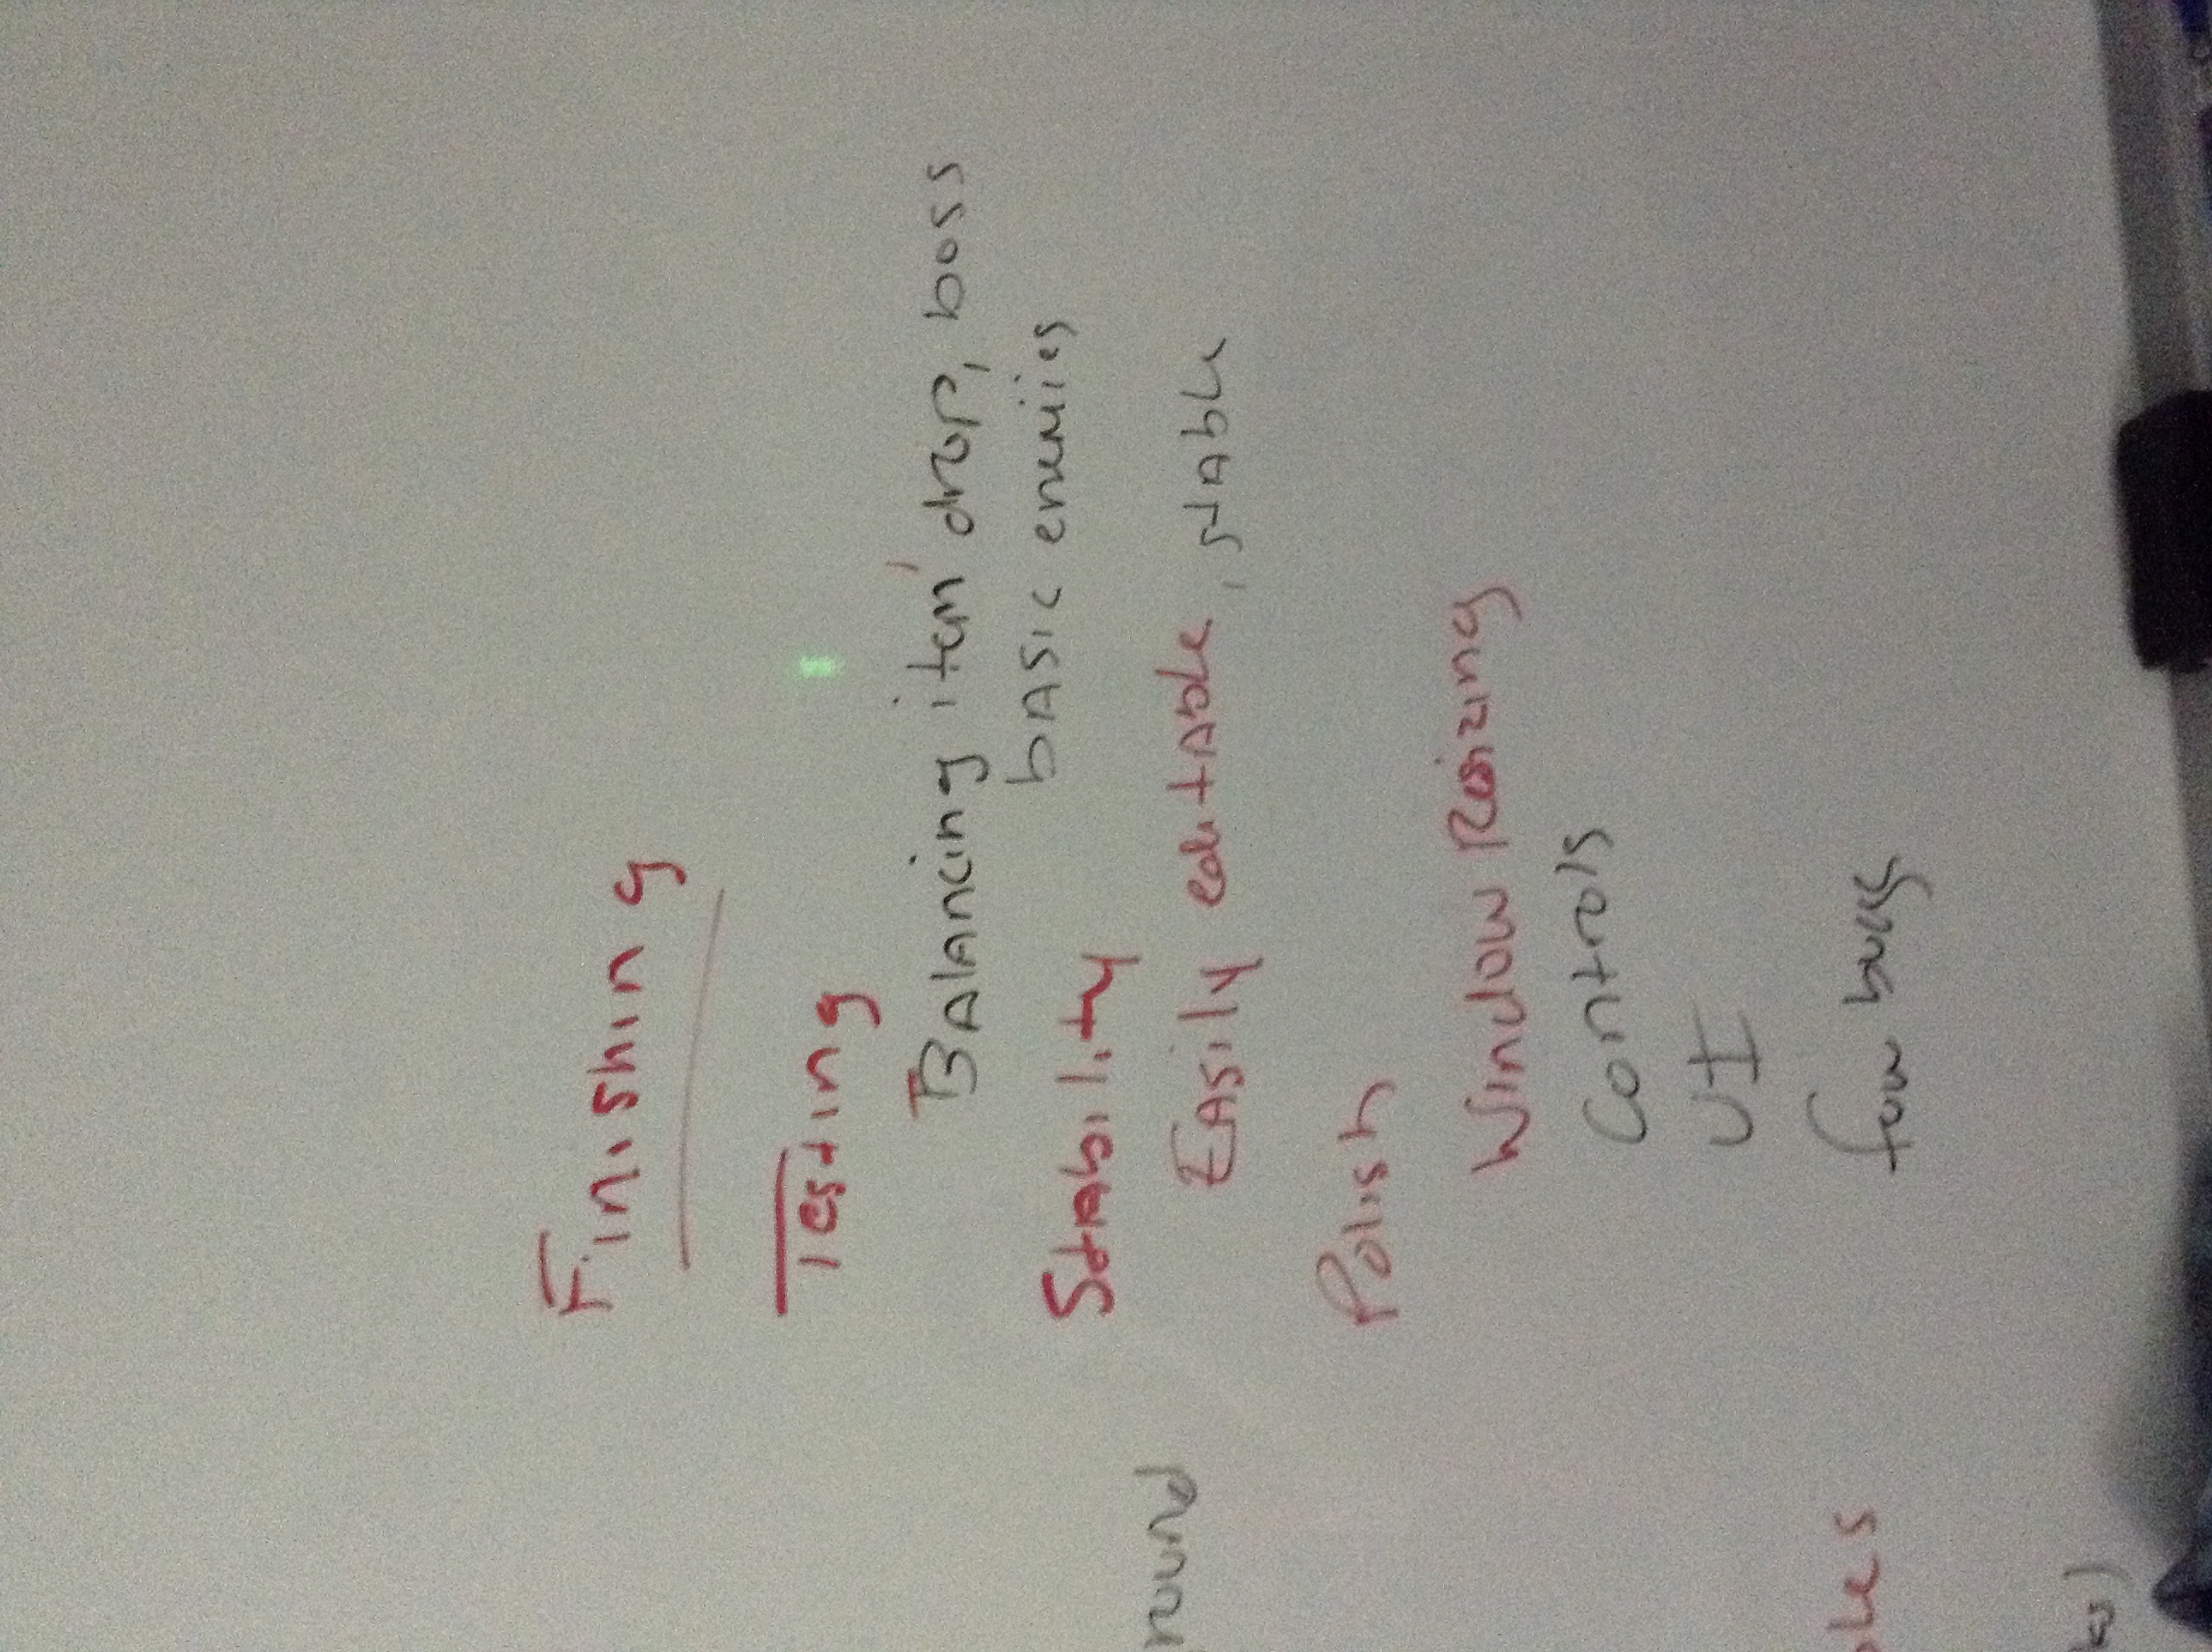 Finishing
Testing
Balancing item drop, boss
basic enemiies
Stability
round
Easily editable, stable
Polish
Window Resizing
Controls
UI
few bugs